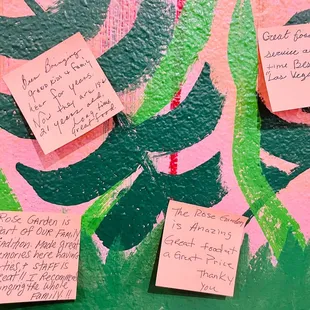 Been Bringing
Grand Kids & Family
hear for years.
Now they are 18 &
21 years old
Long time
Great food
Great food
service a
time Bes
Las Vegas
Rose Garden is
Part of OUR Family
tradition Made great
memories here having
& STAFF is
great!! I Recommend
Bringing the Whole
Family !!
The Rose Garden
is Amazing
Great food at
a Great Price
Thank
you